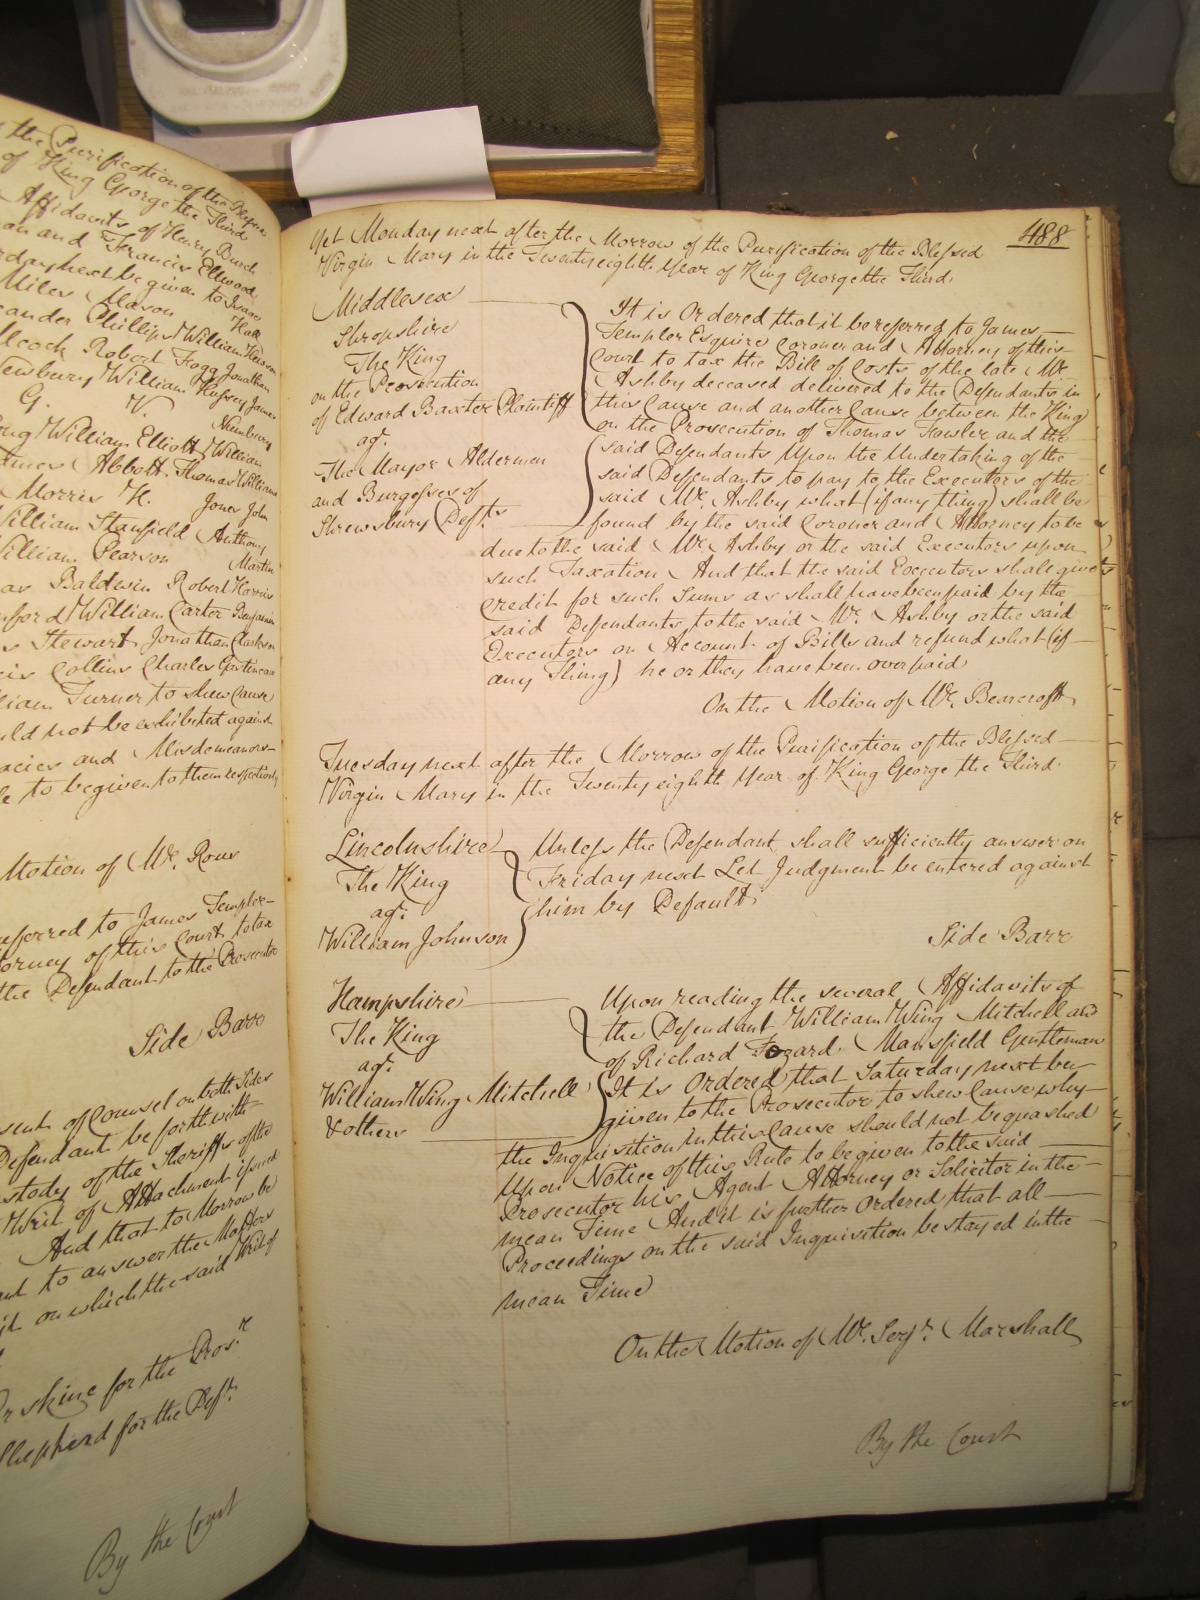 the Purification of the Blessed
of King George the Third
Affidavits of Henry Burch
and Francis Ellwood
next be given to Isaac
Miles Mason Hall
Phillips William
Robert Fogg Jonathan
Newbury William Hussey James
G. N. Newbury
William Elliott William
James Abbott Thomas Williams
Morris H. Jones John
William Stanfield Anthony
William Pearson Martin
Baldwin Robert Harris
William Carter Benjamin
Stewart Jonathan Clarkson
Collins Charles
William Turner to shew Cause
not be exhibited against
and Misdemeanors
to be given to them respectively
Motion of Mr. Rous
referred to James Templer
Attorney of this Court to tax
the Defendant to the Prosecutor
Side Barr
of Counsel on both Sides
Defendant be forthwith
Custody of the Sheriffs of the
Writ of Attachment issued
And that to Morrow be
to answer the Matters
on which the said Writ of
Erskine for the Prosr.
Shepherd for the Deft.
By the Court
488
Yet Monday next after the Morrow of the Purification of the Blessed
Virgin Mary in the Twenty eighth Year of King George the Third
Middlesex
Shropshire
The King
on the Prosecution
of Edward Baxter Plaintiff
agt.
The Mayor Aldermen
and Burgesses of
Shrewsbury Defts
It is Ordered that it be referred to James
Templer Esquire Coroner and Attorney of this
Court to tax the Bill of Costs of the late Mr.
Ashby deceased delivered to the Defendants in
this Cause and another Cause between the King
on the Prosecution of Thomas Fowler and the
said Defendants Upon the Undertaking of the
said Defendants to pay to the Executors of the
said Mr. Ashby what (if any thing) shall be
found by the said Coroner and Attorney to be
due to the said Mr. Ashby or the said Executors upon
such Taxation And that the said Executors shall give
Credit for such Sums as shall have been paid by the
said Defendants to the said Mr. Ashby or the said
Executors on Account of Bills and refund what (if
any Thing) he or they have been over paid
On the Motion of Mr. Bearcroft
Tuesday next after the Morrow of the Purification of the Blessed
Virgin Mary in the Twenty eighth Year of King George the Third
Lincolnshire
The King
agt.
William Johnson
Unless the Defendant shall sufficiently answer on
Friday next Let Judgment be entered against
him by Default
Side Barr
Hampshire
The King
agt.
William Wing Mitchell
& others
Upon reading the several Affidavits of
the Defendant William Wing Mitchell and
of Richard Fozard Mansfield Gentleman
It is Ordered that Saturday next be
given to the Prosecutor to shew Cause why
the Inquisition in this Cause should not be quashed
Upon Notice of this Rule to be given to the said
Prosecutor his Agent Attorney or Solicitor in the
mean Time And it is further Ordered that all
Proceedings on the said Inquisition be stayed in the
mean Time
On the Motion of Mr. Serjt. Marshall
By the Court